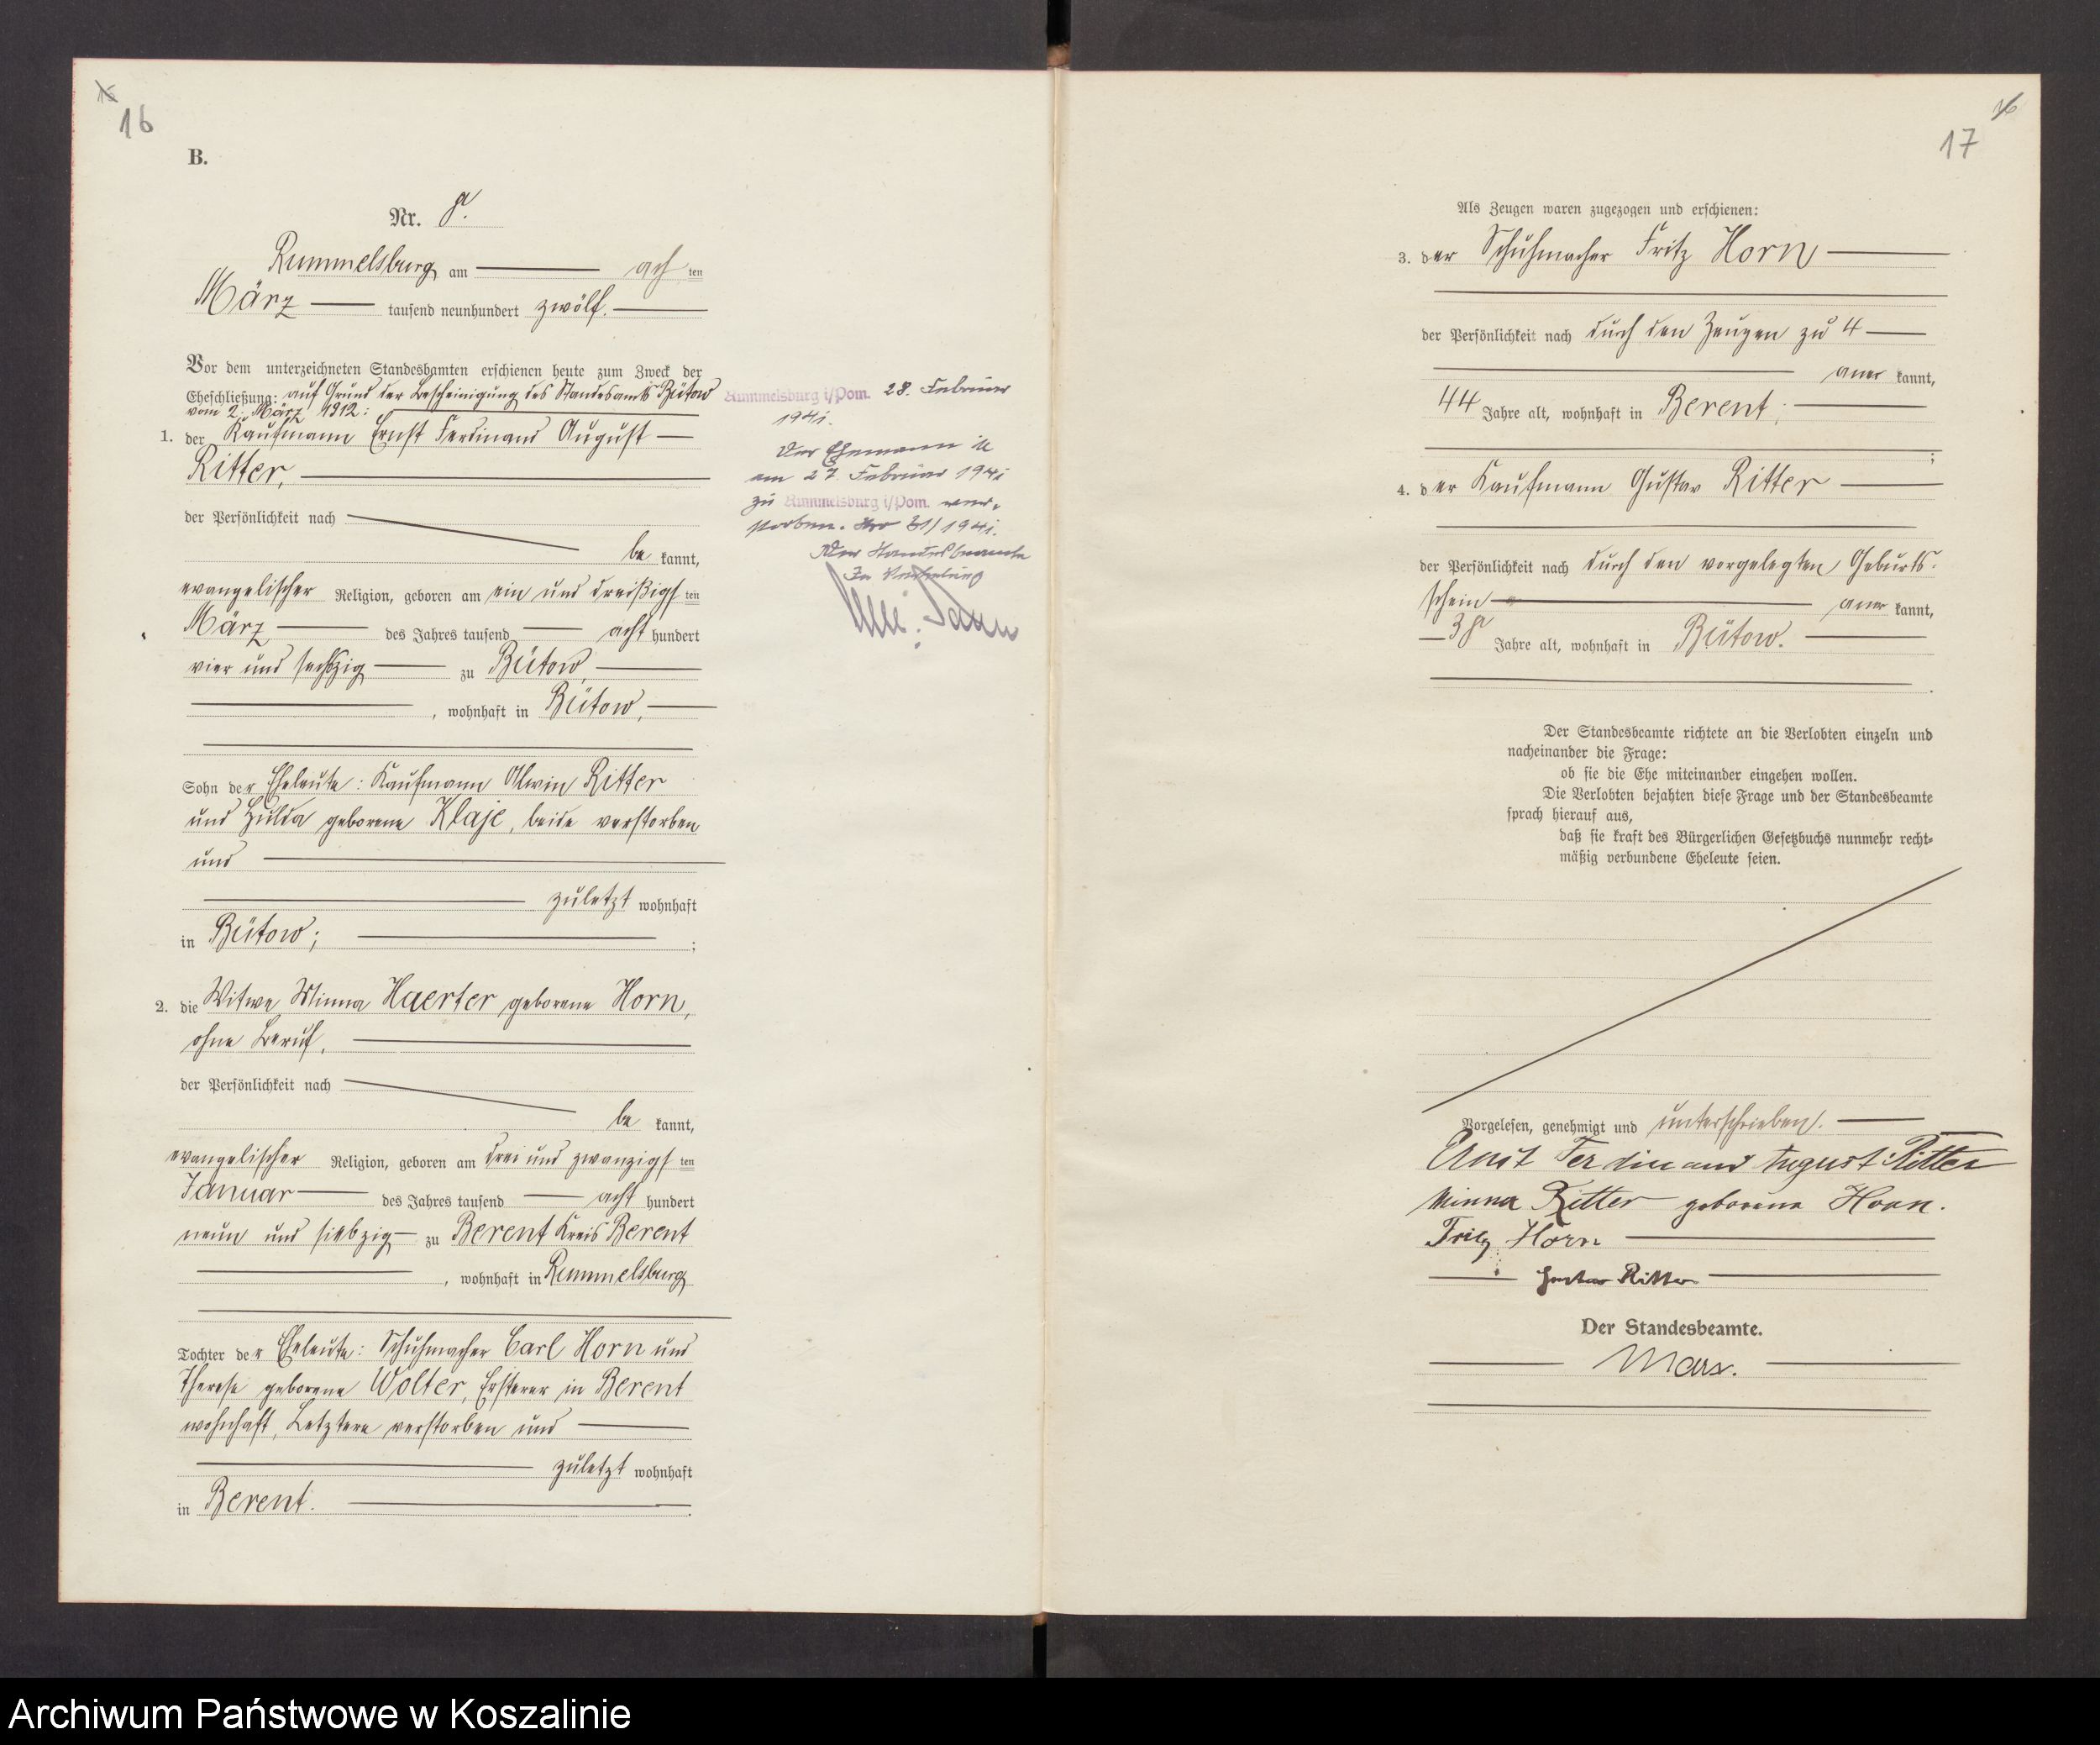 16
B.
Nr. 8.
Rummelsburg am ach ten
März tausend neunhundert zwölf.
Vor dem unterzeichneten Standesbamten erschienen heute zum Zweck der
Eheschließung: auf Grund der Bescheinigung des Standesamts Bütow
vom 2. März 1912:
1. der Kaufmann Ernst Ferdinand August
Ritter,
der Persönlichkeit nach
be kannt,
evangelischer Religion, geboren am ein und dreißigs ten
März des Jahres tausend acht hundert
vier und sechszig zu Bütow,
, wohnhaft in Bütow,
Sohn der Eheleute: Kaufmann Alwin Ritter
und Hulda geborene Klaje, beide verstorben
und
zuletzt wohnhaft
in Bütow; ;
2. die Witwe Minna Haerter geborene Horn,
ohne Beruf,
der Persönlichkeit nach
be kannt,
evangelischer Religion, geboren am drei und zwanzigs ten
Januar des Jahres tausend acht hundert
neun und siebzig zu Berent Kreis Berent
, wohnhaft in Rummelsburg
Tochter der Eheleute: Schuhmacher Carl Horn und
Therese geborene Wolter, Ersterer in Berent
wohnhaft, Letztere verstorben und
zuletzt wohnhaft
in Berent.
Rummelsburg i/Pom. 28. Februar
1941.
Der Ehemann ist
am 27. Februar 1941
zu Rummelsburg i/Pom. ver-
storben. Nro 31/1941.
Der Standesbeamte
In Vertretung
17
Als Zeugen waren zugezogen und erschienen:
3. der Schuhmacher Fritz Horn
der Persönlichkeit nach durch den Zeugen zu 4
aner kannt,
44 Jahre alt, wohnhaft in Berent;
;
4. der Kaufmann Gustav Ritter
der Persönlichkeit nach durch den vorgelegten Geburts-
schein aner kannt,
38 Jahre alt, wohnhaft in Bütow.
Der Standesbeamte richtete an die Verlobten einzeln und
nacheinander die Frage:
ob sie die Ehe miteinander eingehen wollen.
Die Verlobten bejahten diese Frage und der Standesbeamte
sprach hierauf aus,
daß sie kraft des Bürgerlichen Gesetzbuchs nunmehr recht-
mäßig verbundene Eheleute seien.
Vorgelesen, genehmigt und unterschrieben.
Ernst Ferdinand August Ritter
Minna Ritter geborene Horn.
Fritz Horn
Gustav Ritter
Der Standesbeamte.
Marx.
Archiwum Państwowe w Koszalinie